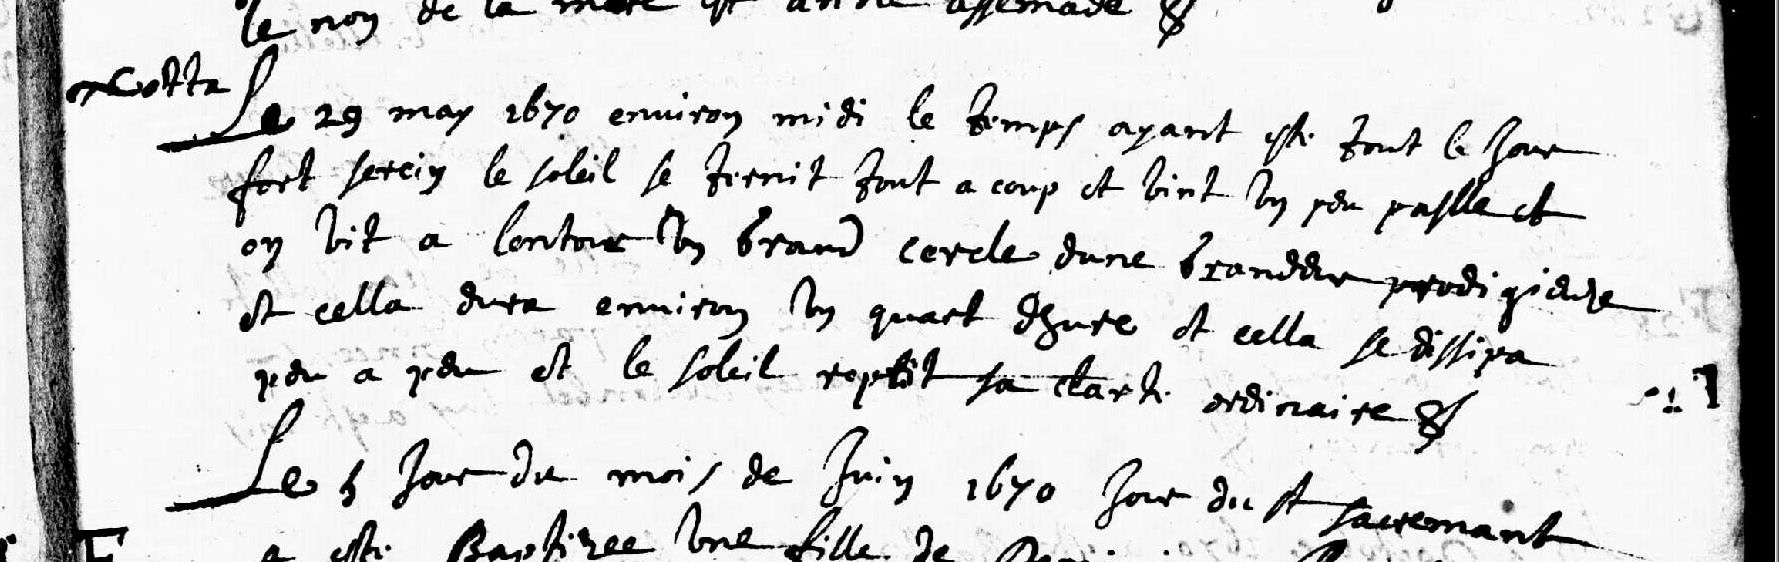 le non de la mere est anne assemade &
notta
Le 29 may 1670 environ midi le temps ayant esté tout le Jour
fort serein le soleil se ternit tout a coup et vint un peu paslle et
on vit a lentour un grand cercle dune grandeur prodigieuze
et cella dura environ un quart dhure et cella se dissipa
peu a peu et le soleil reprit sa clarté ordinaire &
Le 5 Jour du mois de Juin 1670 Jour du st sacremant
a esté Baptizee une fille de